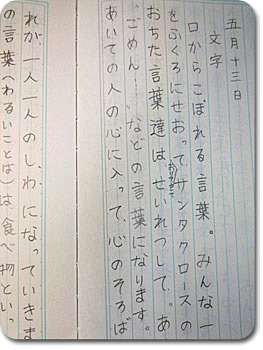 五月十三日
文字
口からこぼれる言葉。みんな一
をふくろにせおって、サンタクロースの
おちた言葉達はせいれつして、"あ
"ごめん"などの言葉になります。
あいての人の心に入って、心のそろば
れが一人一人の"しわ"になっていきま
の言葉(わるいことば)は食べ物とい